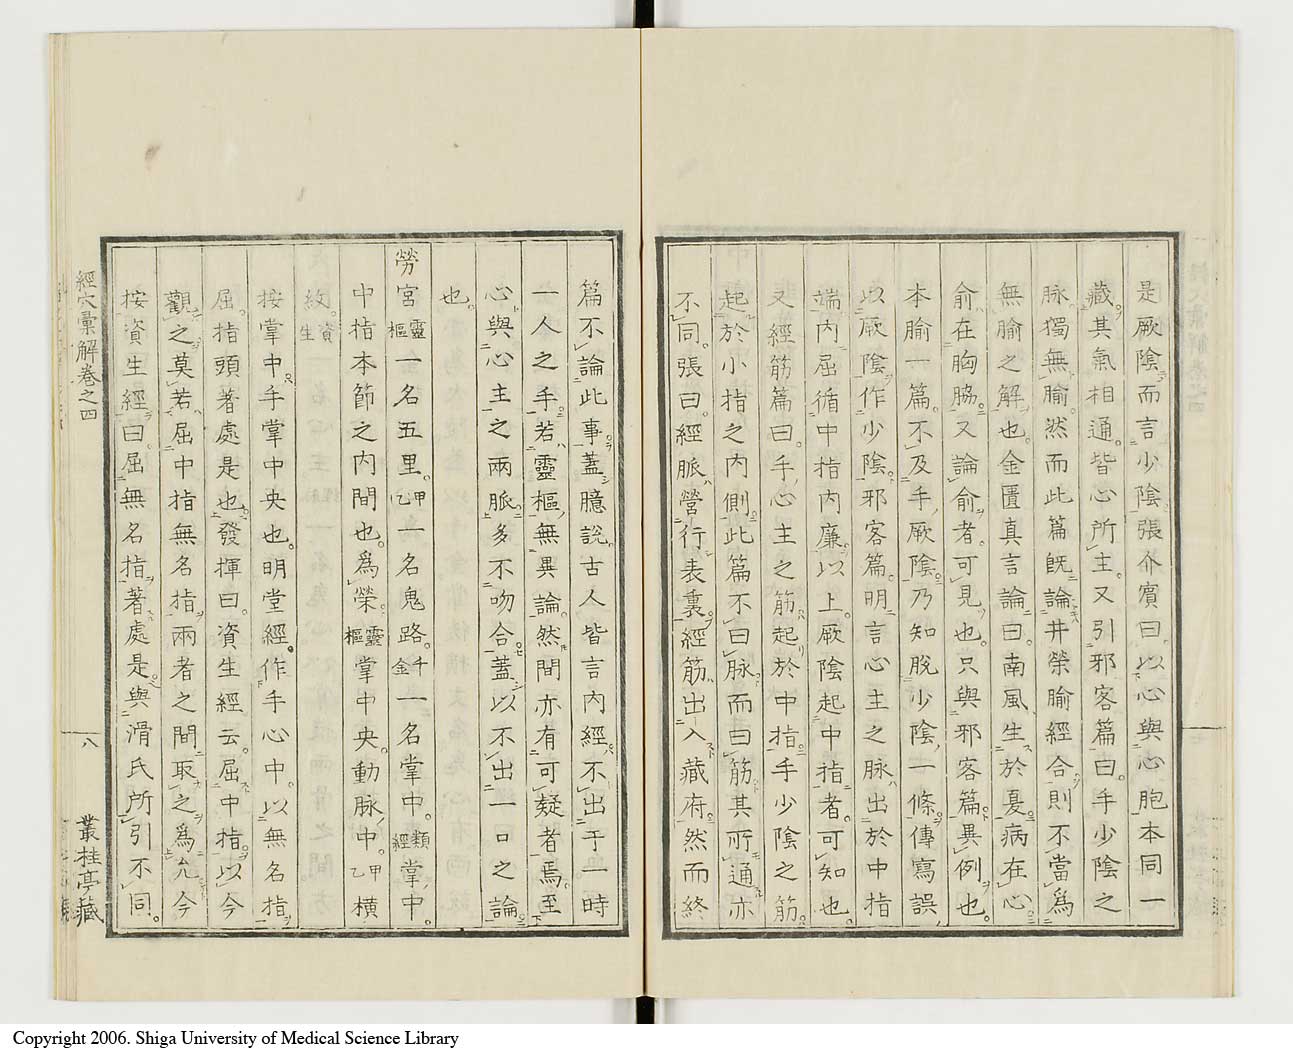 是厥陰而言少陰張介賓曰以心與心胞本同一
藏其氣相通皆心所主又引邪客篇曰手少陰之
脉獨無腧然而此篇既論井榮腧經合則不當爲
無腧之解也金匱真言論曰南風生於憂病在心
俞在胸脇又論俞者可見也只與邪客篇異例也
本腧一篇不及手厥陰乃知脫少陰一條傳寫誤
以厥陰作少陰邪客篇明言心主之脉出於中指
端内屈循中指内廉以上厥陰起中指者可知也
又經筋篇曰手心主之筋起於中指手少陰之筋
起於小指之内側此篇不曰脉而曰筋其所通亦
不同張曰經脈營行表裏經筋出入藏府然而終
篇不論此事蓋臆說古人皆言内經不出于一時
一人之手若靈樞無異論然間亦有可疑者焉至
心與心主之兩脈多不吻合蓋以不出一口之論
也
勞宮靈樞一名五里甲乙一名鬼路千金一名掌中類經掌中
中指本節之内間也爲榮靈樞掌中央動脉中甲乙橫
紋資生
按掌中手掌中央也明堂經作手心中以無名指
屈指頭著處是也發揮曰資生經云屈中指以今
觀之莫若屈中指無名指兩者之間取之爲允今
按資生經曰屈無名指著處是與滑氏所引不同
經穴彙解卷之四
八
叢桂亭藏
Copyright 2006. Shiga University of Medical Science Library